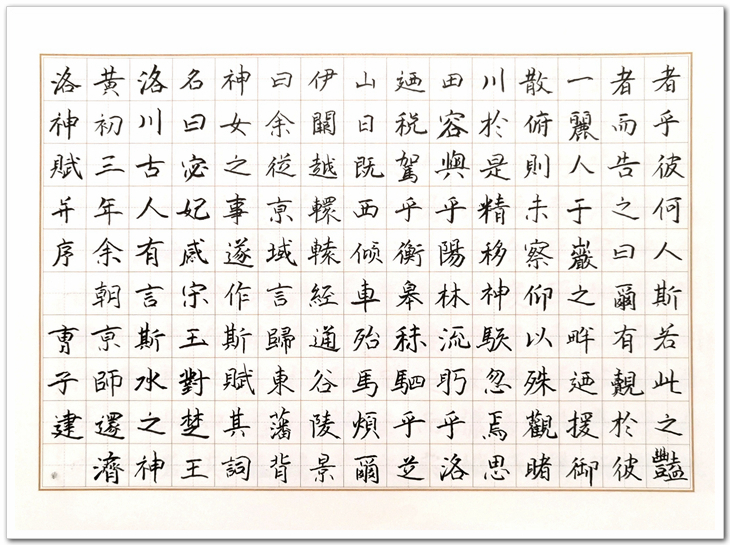 洛神賦并序 曹子建
黃初三年余朝京師還濟
洛川古人有言斯水之神
名曰宓妃感宋玉對楚王
神女之事遂作斯賦其詞
曰余從京域言歸東藩背
伊闕越轘轅經通谷陵景
山日既西傾車殆馬煩爾
迺稅駕乎衡皋秣駟乎芝
田容與乎陽林流眄乎洛
川於是精移神駭忽焉思
散俯則未察仰以殊觀睹
一麗人于巖之畔迺援御
者而告之曰爾有覿於彼
者乎彼何人斯若此之豔